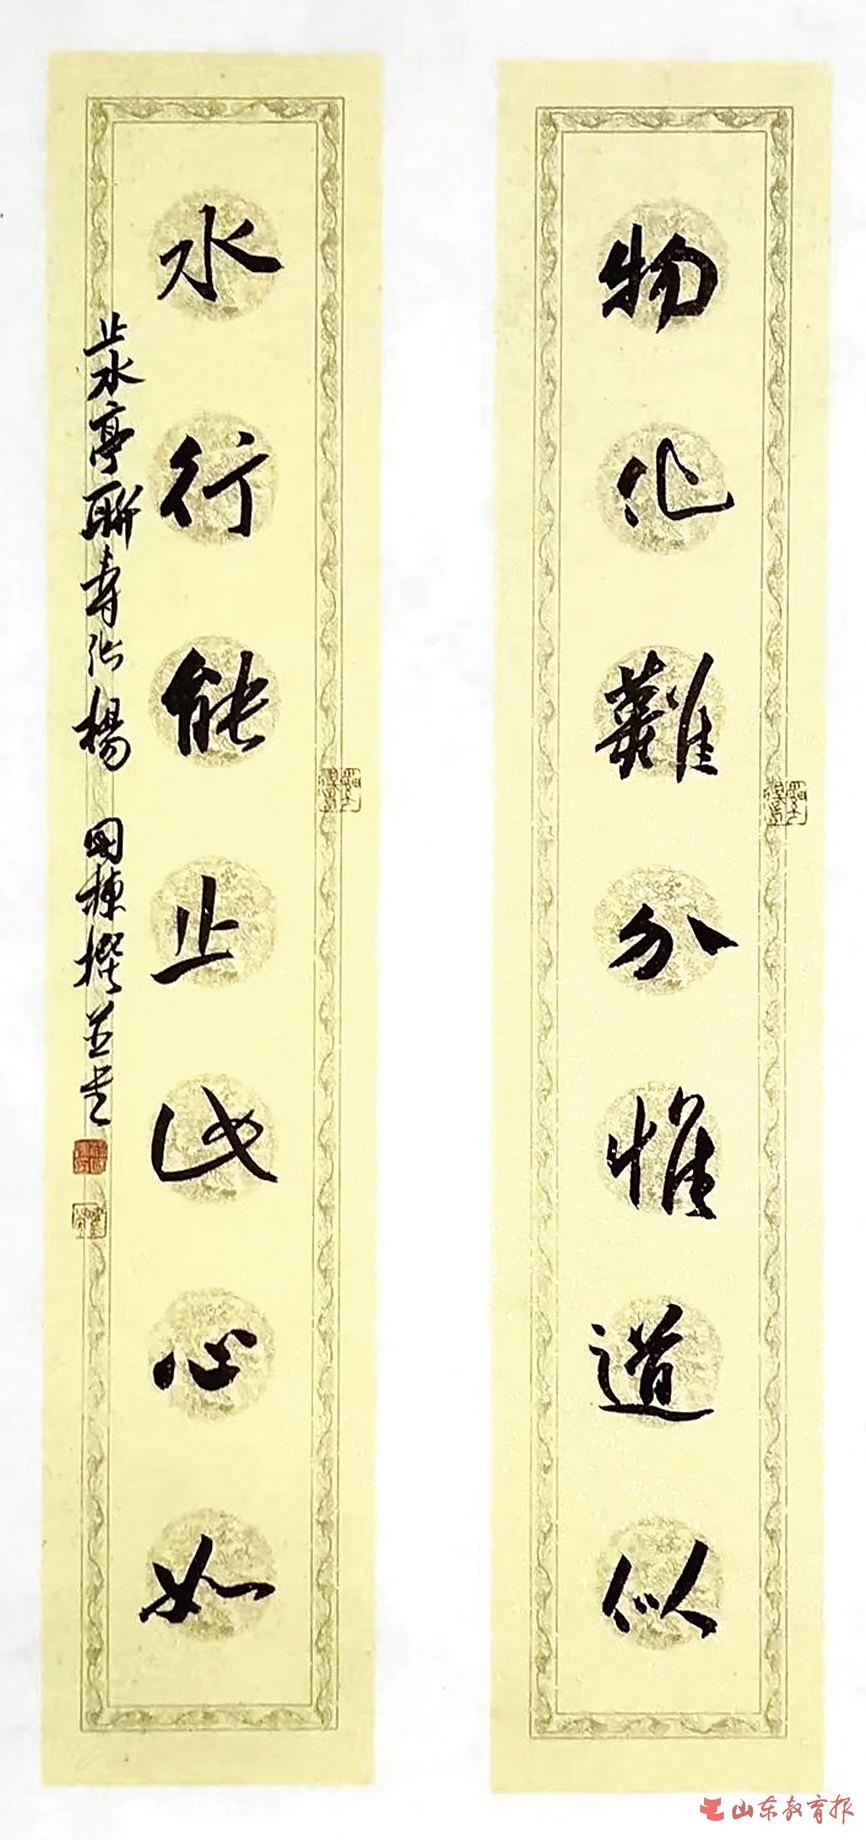 物化難分惟道似
水行能止此心如
止水亭聯壽沂楊國棟撰並書
山东教育报